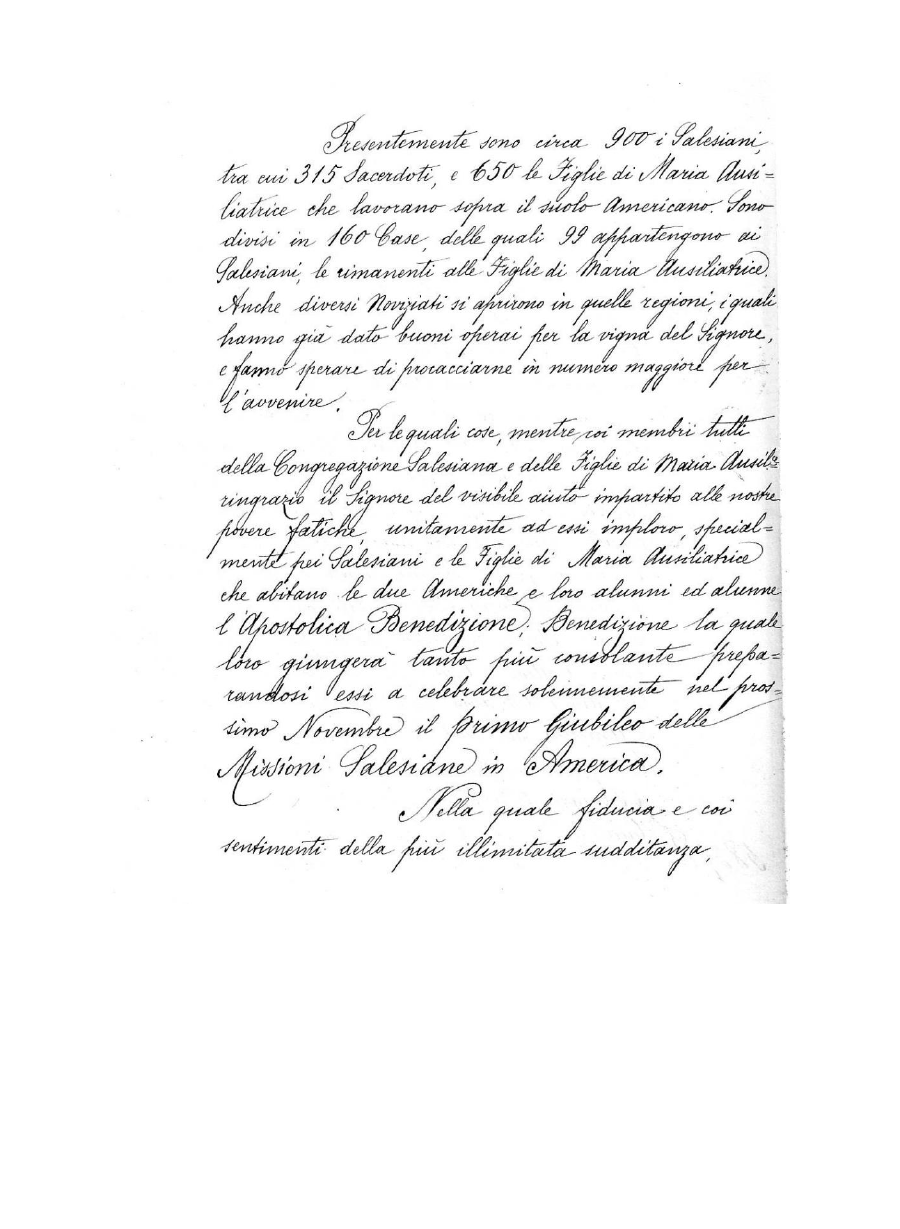 Presentemente sono circa 900 i Salesiani,
tra cui 315 Sacerdoti, e 650 le Figlie di Maria Ausi=
liatrice che lavorano sopra il suolo Americano. Sono
divisi in 160 Case, delle quali 99 appartengono ai
Salesiani, le rimanenti alle Figlie di Maria Ausiliatrice.
Anche diversi Noviziati si aprirono in quelle regioni, i quali
hanno già dato buoni operai per la vigna del Signore,
e fanno sperare di procacciarne in numero maggiore per
l'avvenire.
Per le quali cose, mentre coi membri tutti
della Congregazione Salesiana e delle Figlie di Maria Ausil.ce
ringrazio il Signore del visibile aiuto impartito alle nostre
povere fatiche, unitamente ad essi imploro, special=
mente pei Salesiani e le Figlie di Maria Ausiliatrice
che abitano le due Americhe e loro alunni ed alunne
l'Apostolica Benedizione; Benedizione la quale
loro giungerà tanto più consolante prepa=
randosi essi a celebrare solennemente nel pros=
simo Novembre il primo Giubileo delle
Missioni Salesiane in America.
Nella quale fiducia e coi
sentimenti della più illimitata sudditanza,